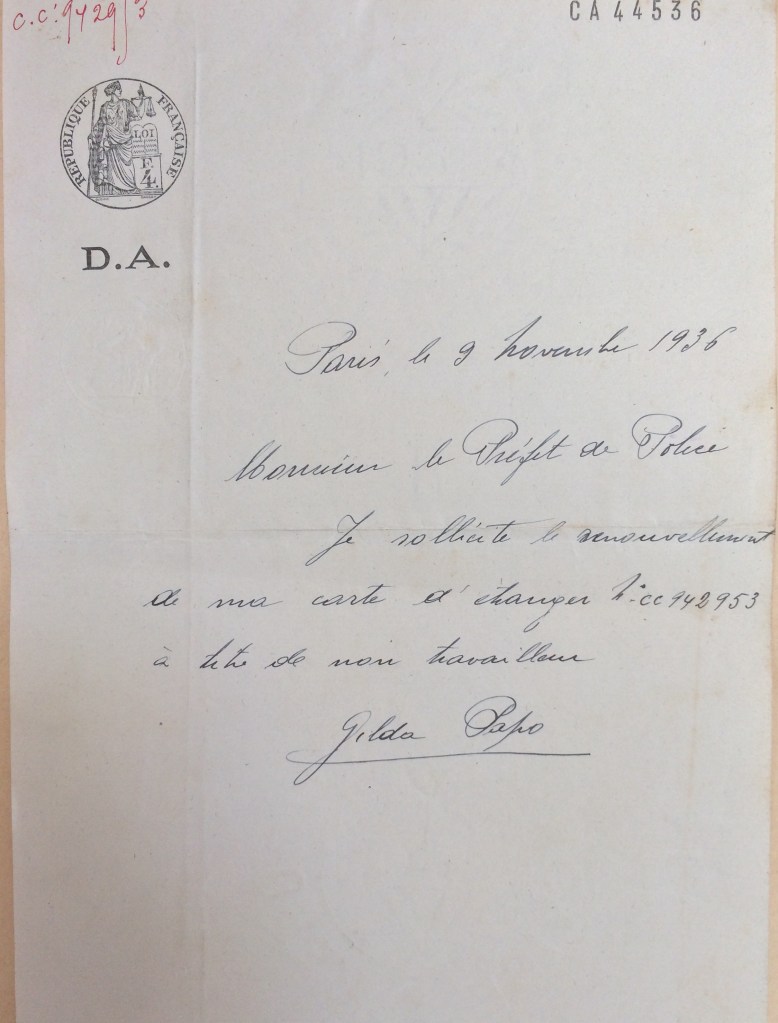 C.C. 942953
CA 44536
RÉPUBLIQUE FRANÇAISE
LOI
F.
4.
D.A.
Paris, le 9 novembre 1936
Monsieur le Préfet de Police
Je sollicite le renouvellement
de ma carte d'étranger N° CC 942953
à titre de non travailleur
Gilda Papo